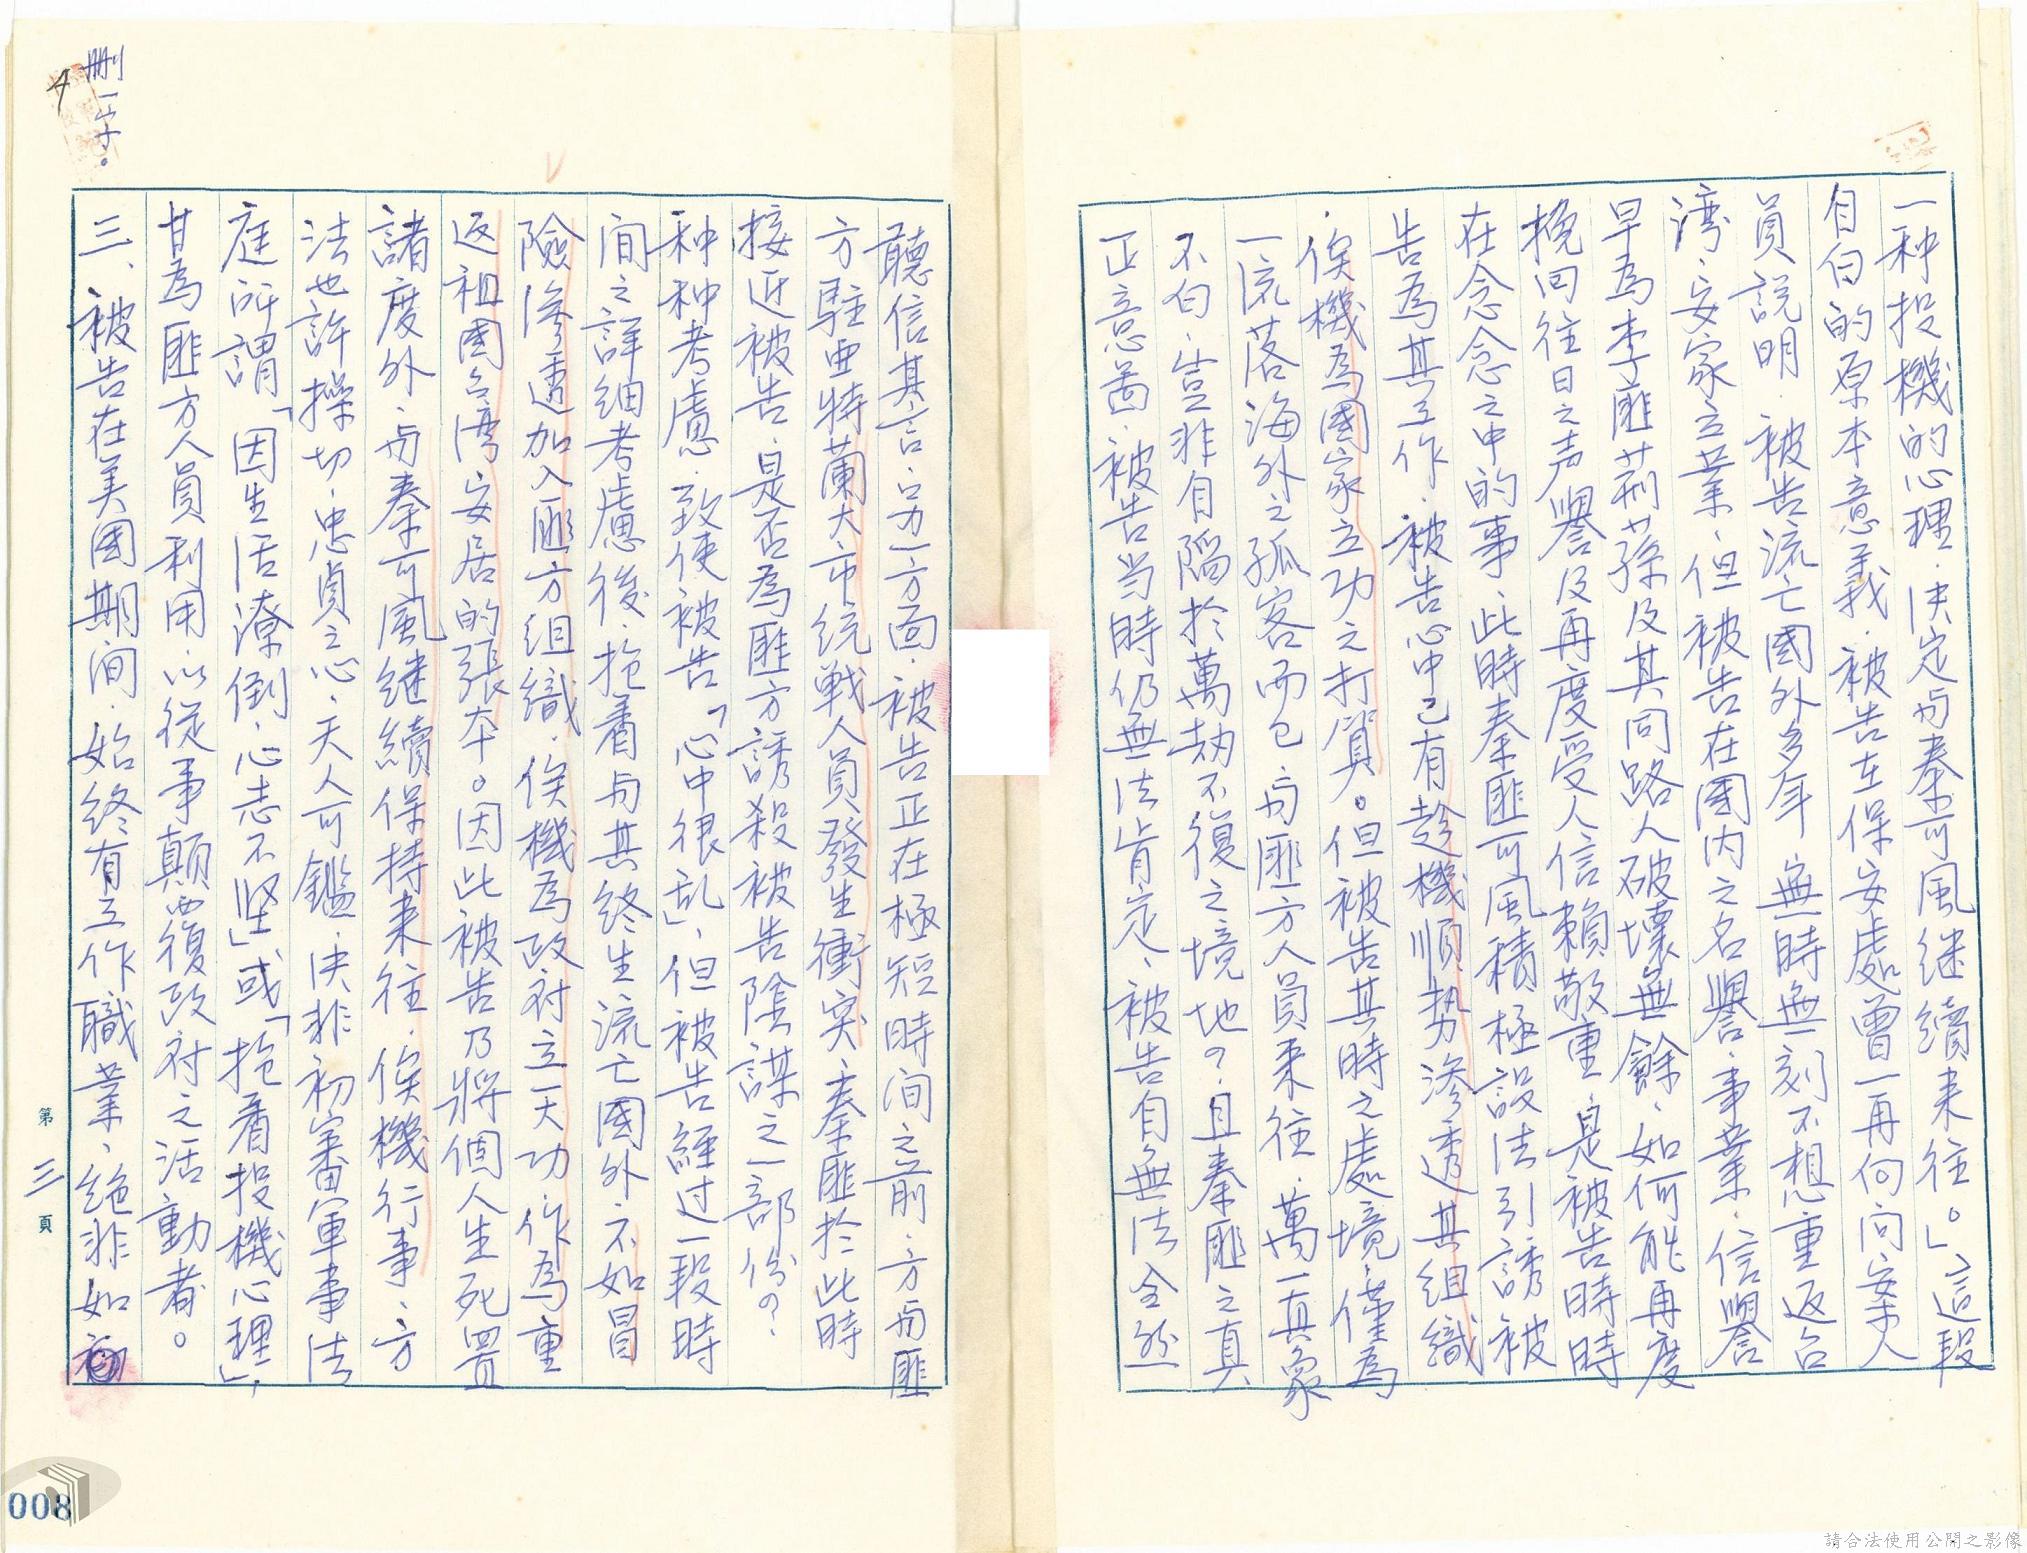 一种投機的心理，決定与秦可風继續来往。」這段
自白的原本意義，被告在保安處曾一再向向案人
員說明，被告流亡國外多年，無時無刻不想重返台
湾，安家立業，但被告在國内之名譽，事業，信譽
早為李匪荊蓀及其同路人破壞無餘，如何能再度
挽回往日之声譽及再度受人信賴敬重，是被告時時
在念念之中的事，此時秦匪可風積極設法引誘被
告為其工作，被告心中已有趁機順勢滲透其組織
，俟機為國家立功之打算。但被告其時之處境，僅為
一流落海外之孤客而已，与匪方人員来往，萬一真象
不白，豈非自陷於萬劫不復之境地？且秦匪之真
正意啚，被告当時仍無法肯定，被告自無法全然
聽信其言，另一方面，被告正在極短時间之前，方与匪
方駐亜特蘭大市统戦人員發生衝突，秦匪於此時
接近被告，是否為匪方誘殺被告陰謀之一部份？，
种种考慮，致使被告「心中很乱」，但被告經过一段時
间之詳细考慮後，抱着与其終生流亡國外，不如冒
險滲透加入匪方組織，俟機為政府立一大功，作為重
返祖國台湾安居的張本。因此被告乃將個人生死置
諸度外，与秦可風继續保持来往，俟機行事，方
法也許操切，忠貞之心，天人可鑑，決非初審軍事法
庭所謂「因生活潦倒，心志不坚」或「抱着投機心理」，
甘為匪方人員利用，以從事顛覆政府之活動者。
三、被告在美國期间，始終有工作職業，绝非如初
删一字。
4
第三頁
008
請合法使用公開之影像